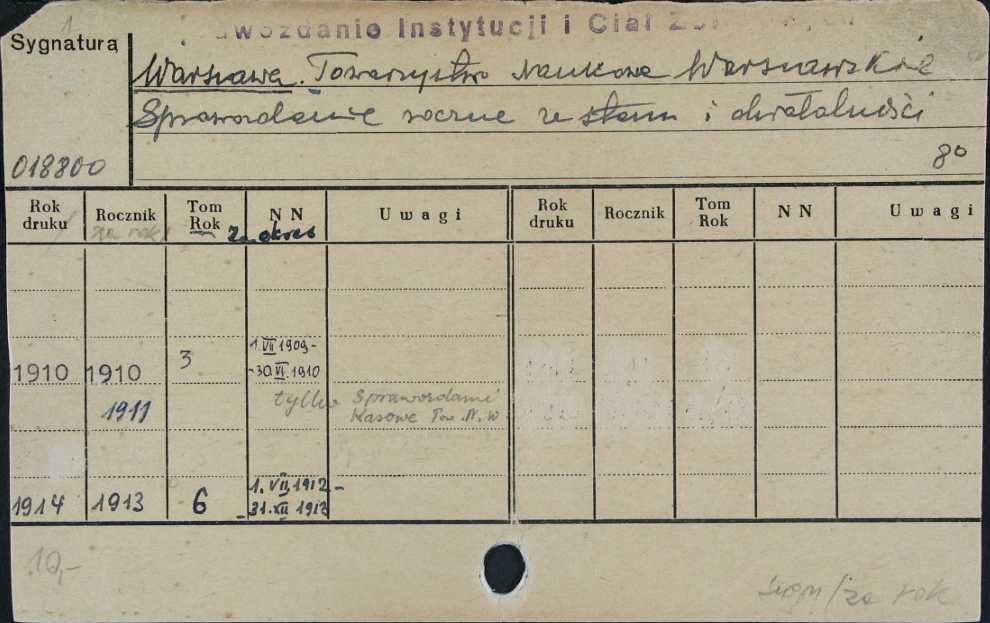 1
Instytucji i Ciał
Sygnatura
Warszawa. Towarzystwo Naukowe Warszawskie
Sprawozdanie roczne ze stanu i działalności
018800
8o
Rok druku Rocznik Tom Rok NN Uwagi Rok druku Rocznik Tom Rok NN Uwagi
za rok Za okres
1910 1910 3 1.VII 1909- -30.VI.1910
1911 tylko Sprawozdanie Kasowe Tow. N. W
1914 1913 6 1.VII 1912- -31.XII 1913
10,-
sygn/za rok